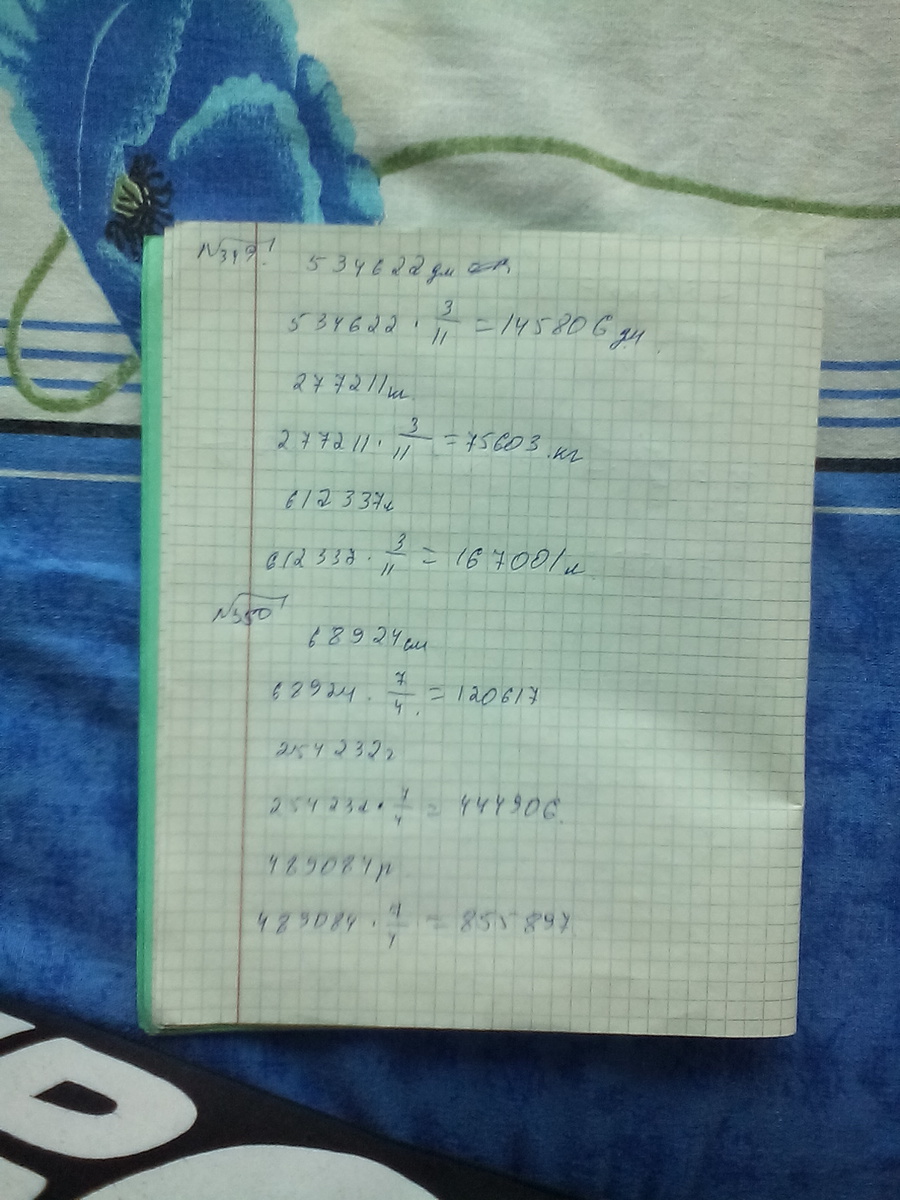 №349.
534622 дм
534622 · 3/11 = 145806 дм.
277211 кг
277211 · 3/11 = 75603 кг
612337 л
612337 · 3/11 = 167001 л
№350
68924 см
68924 · 7/4 = 120617
254232 г
254232 · 7/4 = 444906.
489084 р.
489084 · 7/4 = 855897